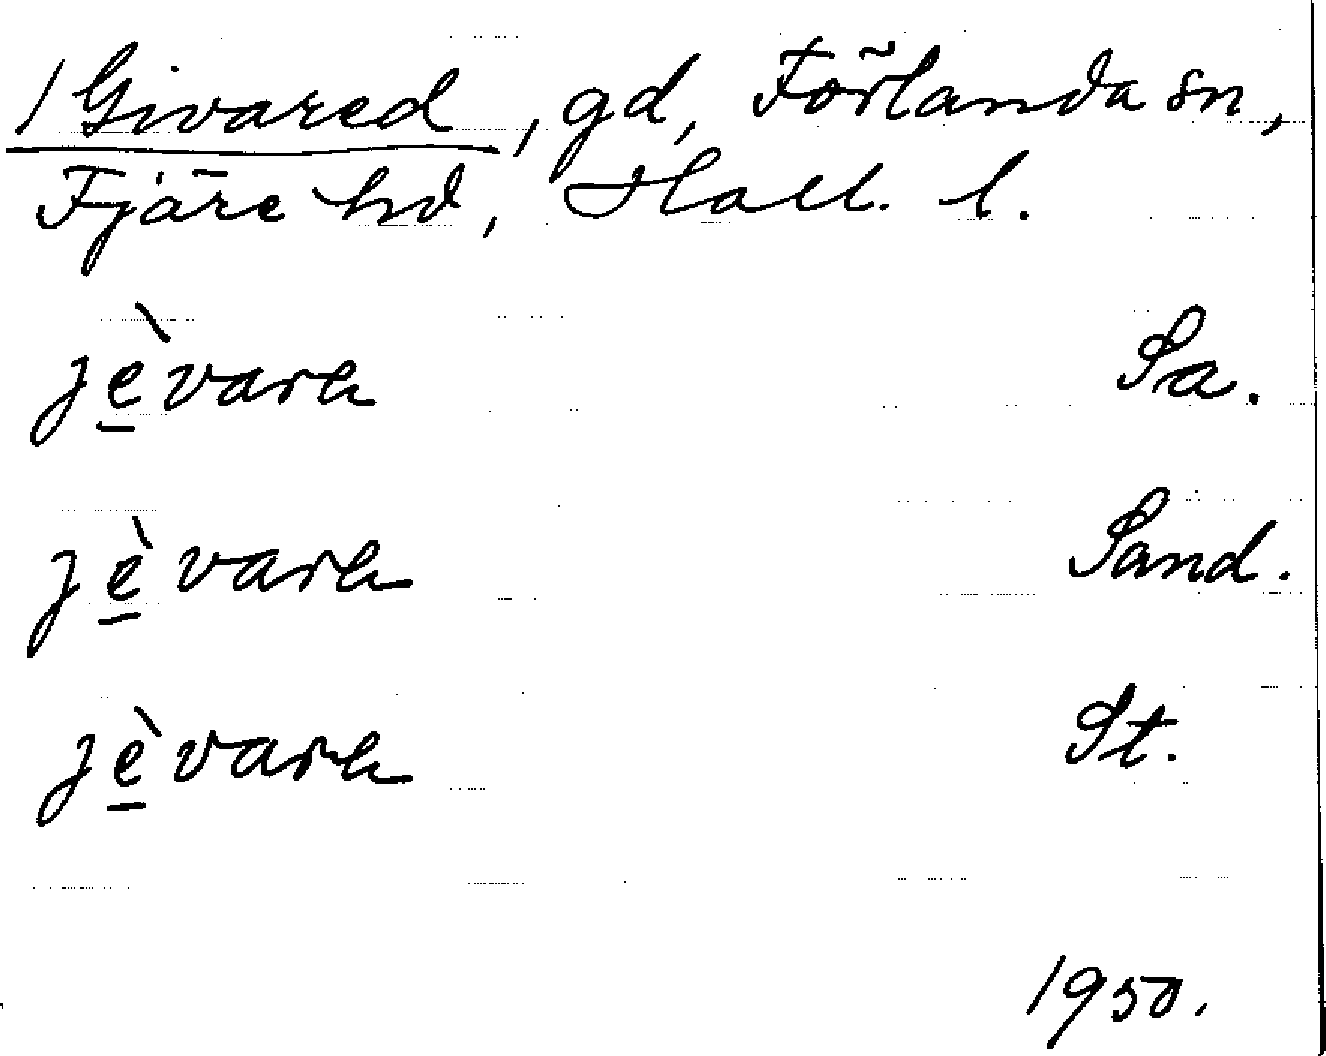 /Givared, gd, Förlanda sn,
Fjäre hd, Hall. l.
jè̱vara Sa.
jè̱vara Sand.
jè̱vara St.
1950.